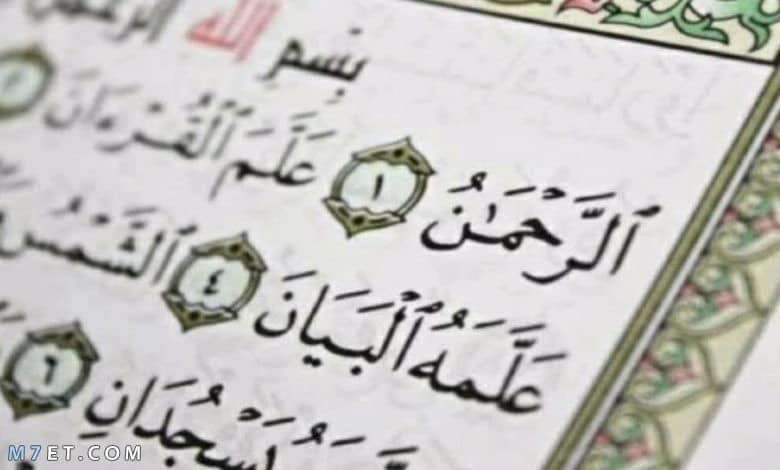 بِسْمِ ٱللَّهِ ٱلرَّحْمَٰ
ٱلرَّحْمَٰنُ ١ عَلَّمَ ٱلْقُرْءَانَ ٢
عَلَّمَهُ ٱلْبَيَانَ ٤ ٱلشَّمْسُ
يَسْجُدَانِ ٦
M7ET.COM